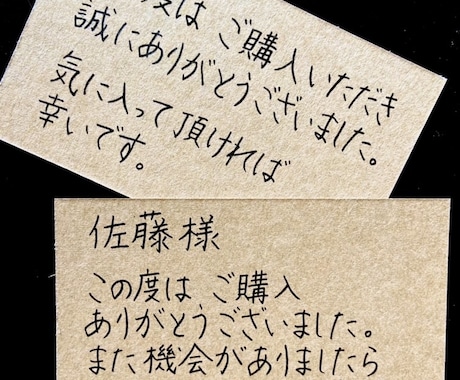 度は ご購入いただき
誠にありがとうございました。
気に入って頂ければ
幸いです。
佐藤様
この度は ご購入
ありがとうございました。
また機会がありましたら